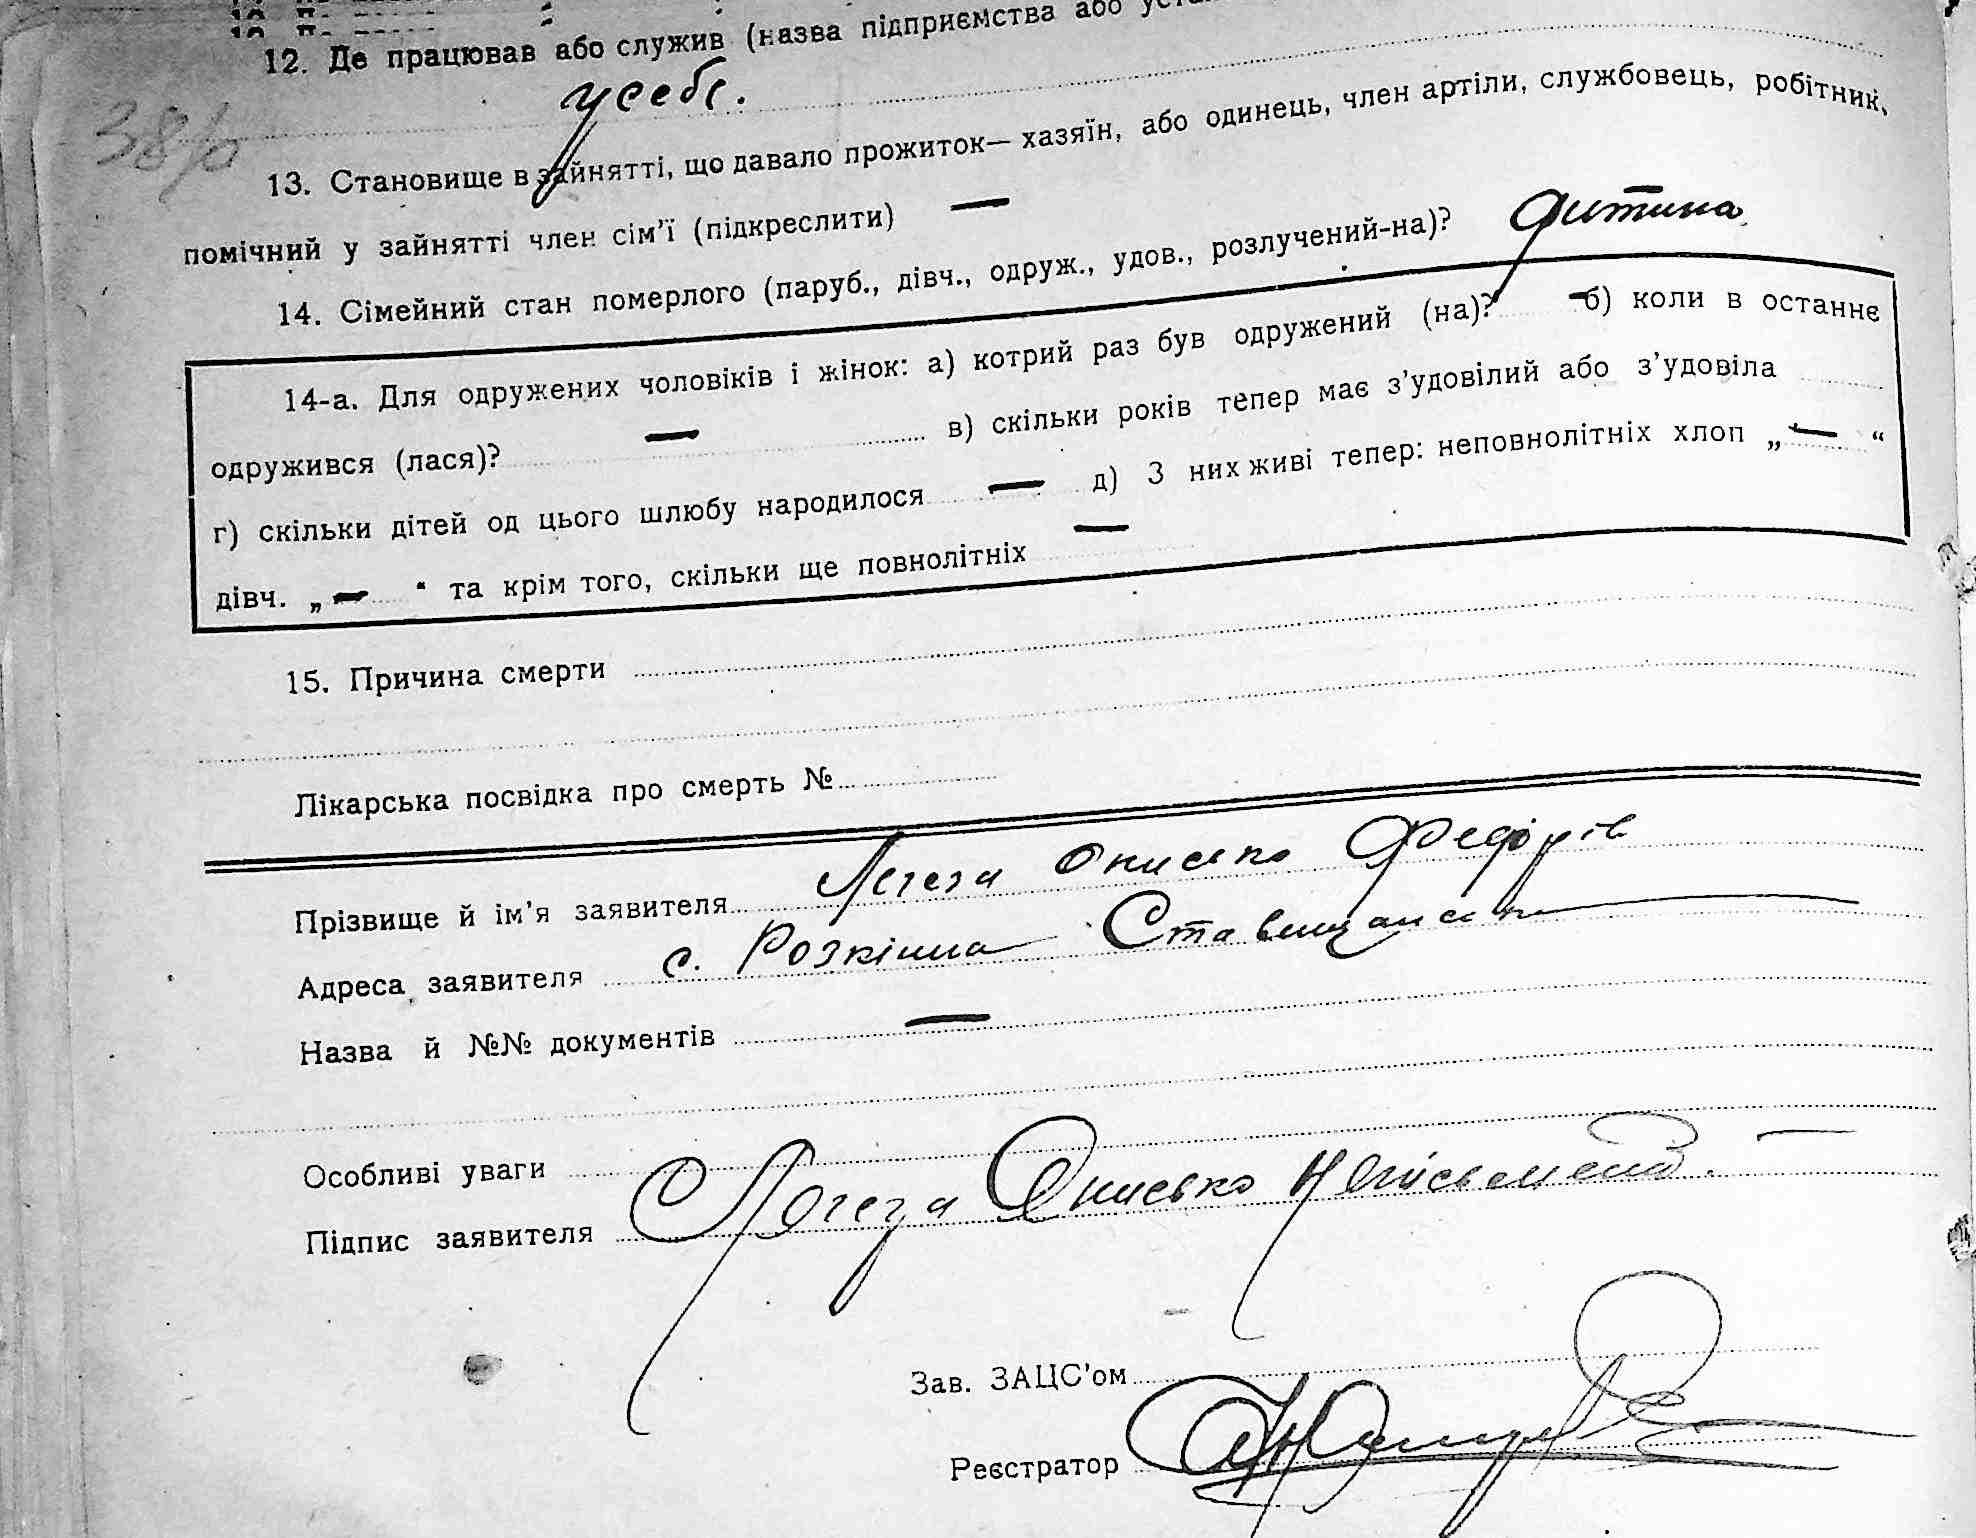 12. Де працював або служив (назва підприємства або
усебе.
38/0
13. Становище в зайнятті, що давало прожиток— хазяїн, або одинець, член артіли, службовець, робітник,
помічний у зайнятті член сім’ї (підкреслити) —
14. Сімейний стан померлого (паруб., дівч., одруж., удов., розлучений-на)? дитина
14-а. Для одружених чоловіків і жінок: а) котрий раз був одружений (на)? — б) коли в останнє
одружився (лася)? — в) скільки років тепер має з’удовілий або з’удовіла
г) скільки дітей од цього шлюбу народилося — д) З них живі тепер: неповнолітніх хлоп „—“
дівч. „—“ та крім того, скільки ще повнолітніх —
15. Причина смерти
Лікарська посвідка про смерть №
Прізвище й ім’я заявителя Легеза Онисько Федорів
Адреса заявителя с. Розкішна Ставищанськ
Назва й №№ документів —
Особливі уваги —
Підпис заявителя Легеза Онисько
Зав. ЗАЦС’ом
Реєстратор